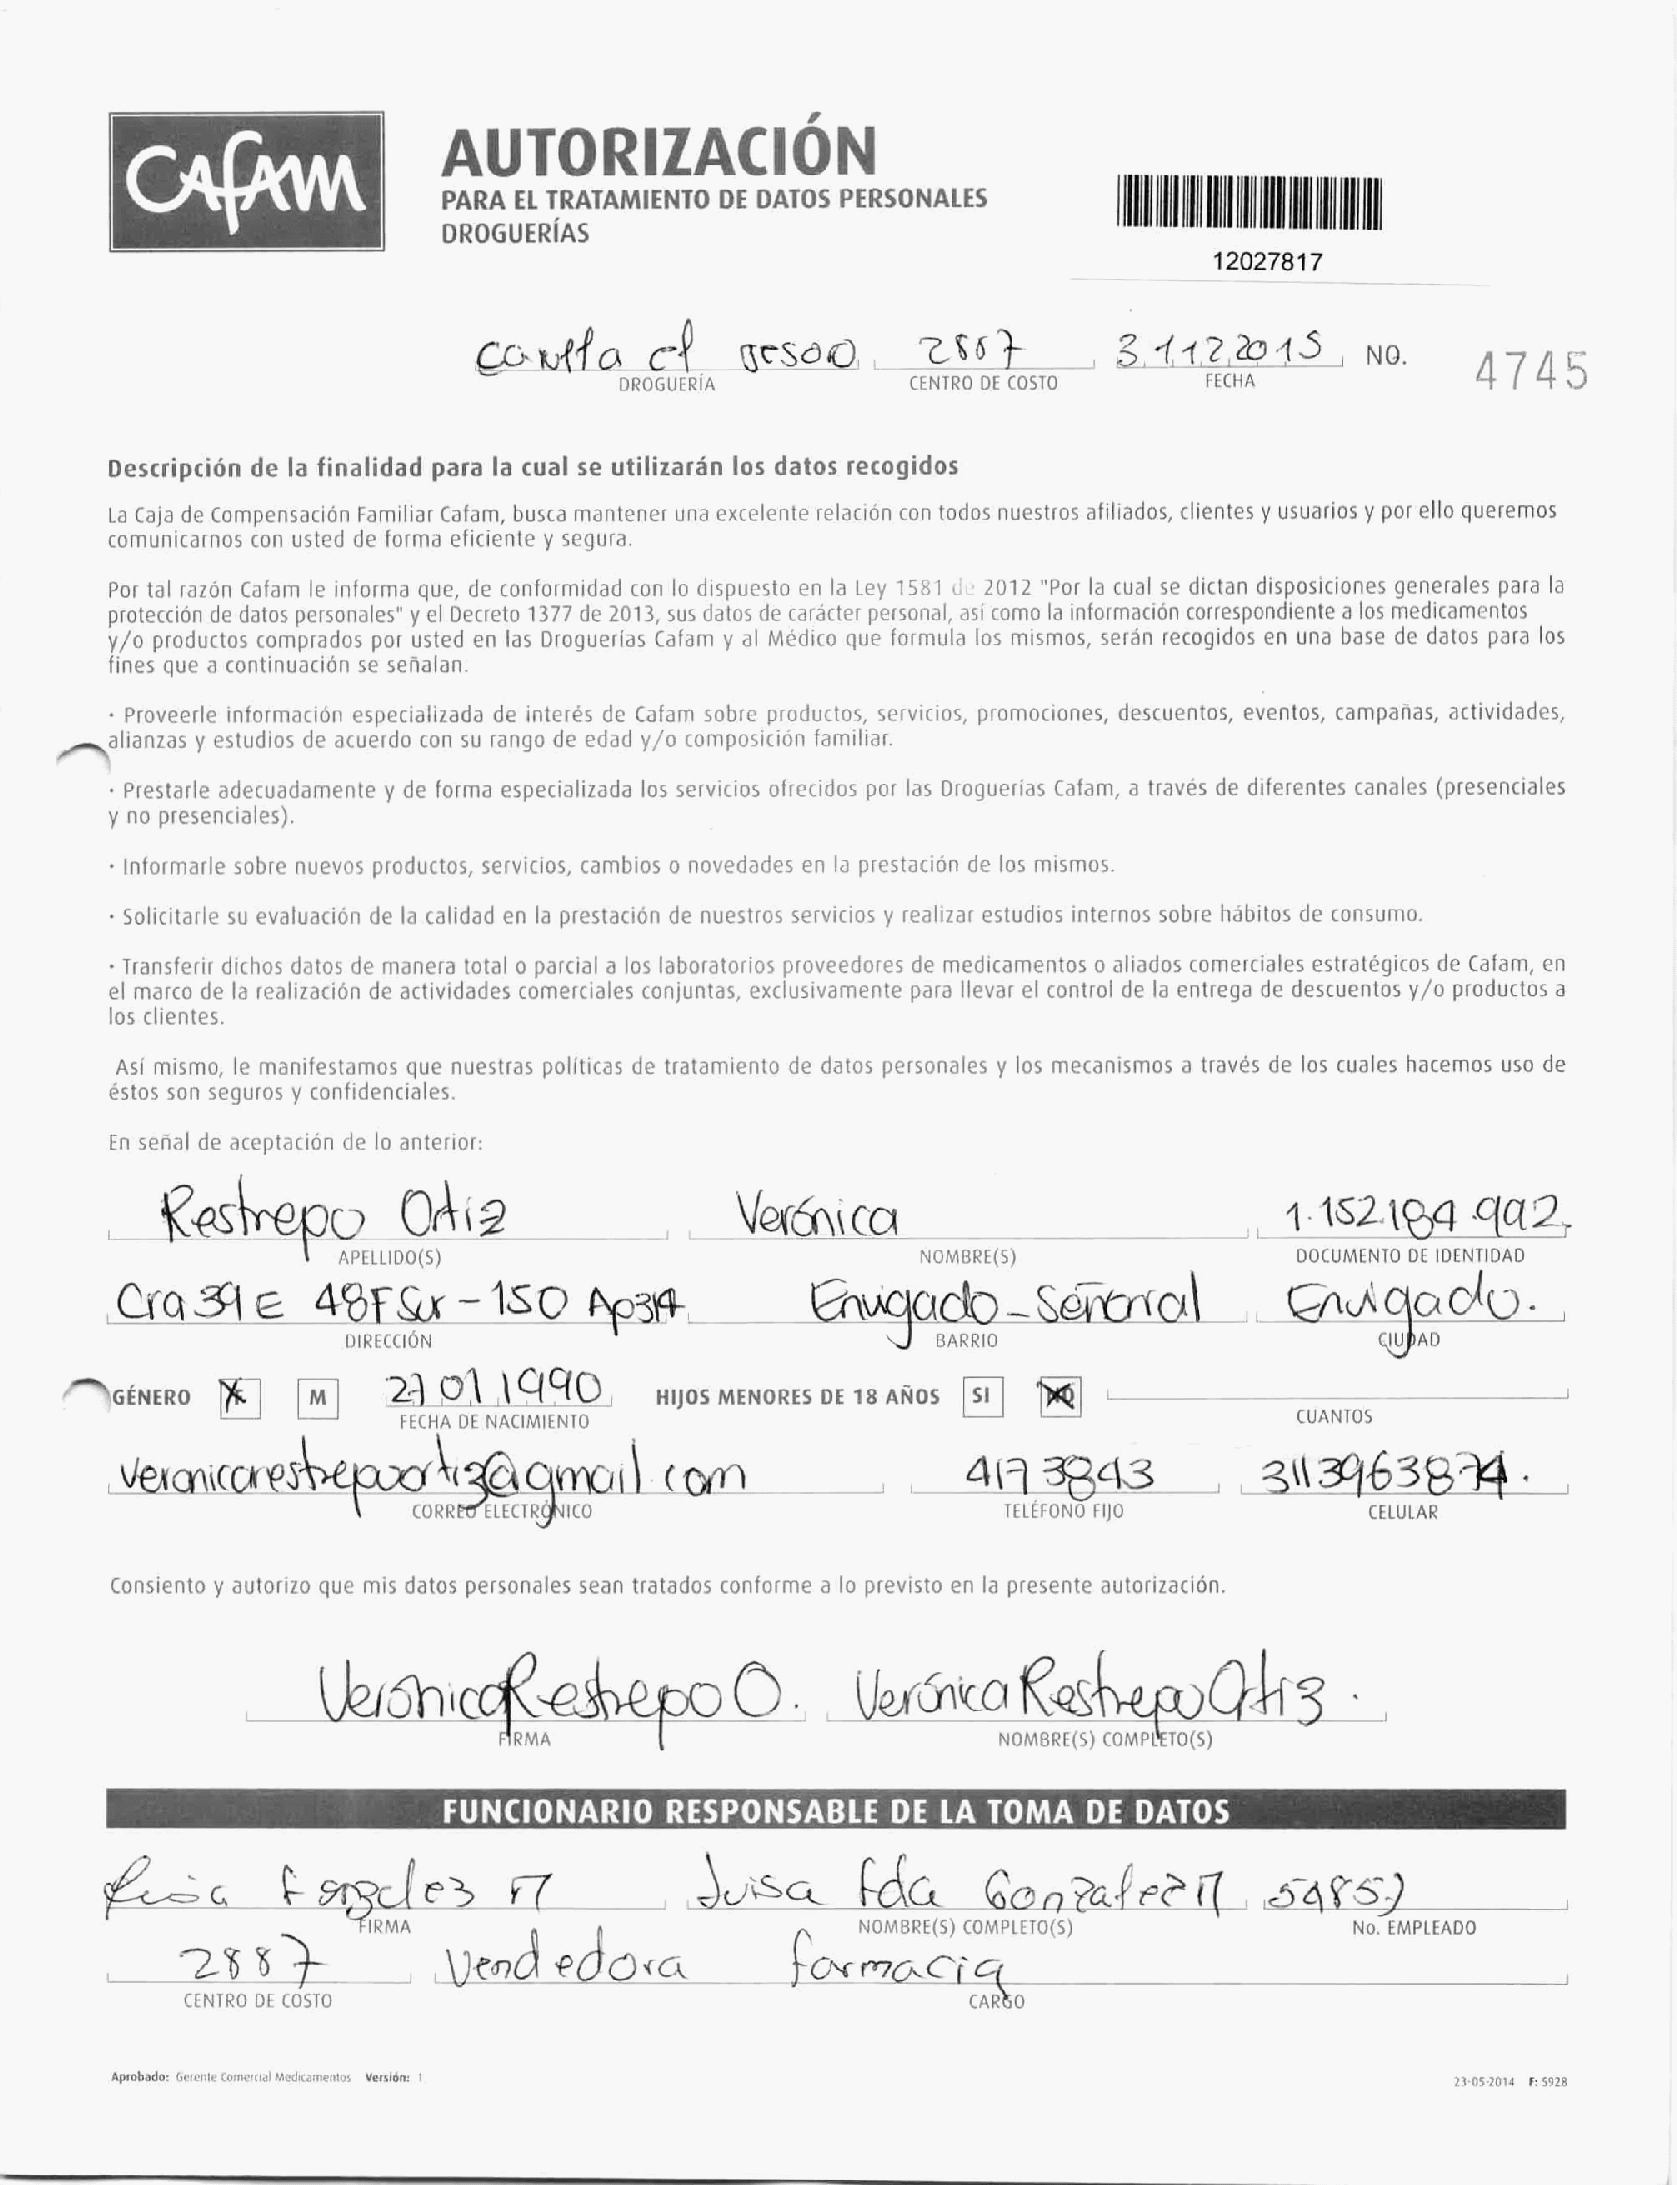 Cafam
AUTORIZACIÓN
PARA EL TRATAMIENTO DE DATOS PERSONALES
DROGUERÍAS
12027817
el 2887 31 12 2015 NO. 4745
DROGUERÍA CENTRO DE COSTO FECHA
Descripción de la finalidad para la cual se utilizarán los datos recogidos
La Caja de Compensación Familiar Cafam, busca mantener una excelente relación con todos nuestros afiliados, clientes y usuarios y por ello queremos
comunicarnos con usted de forma eficiente y segura.
Por tal razón Cafam le informa que, de conformidad con lo dispuesto en la Ley 1581 de 2012 "Por la cual se dictan disposiciones generales para la
protección de datos personales" y el Decreto 1377 de 2013, sus datos de carácter personal, así como la información correspondiente a los medicamentos
y/o productos comprados por usted en las Droguerías Cafam y al Médico que formula los mismos, serán recogidos en una base de datos para los
fines que a continuación se señalan.
· Proveerle información especializada de interés de Cafam sobre productos, servicios, promociones, descuentos, eventos, campañas, actividades,
alianzas y estudios de acuerdo con su rango de edad y/o composición familiar.
· Prestarle adecuadamente y de forma especializada los servicios ofrecidos por las Droguerías Cafam, a través de diferentes canales (presenciales
y no presenciales).
· Informarle sobre nuevos productos, servicios, cambios o novedades en la prestación de los mismos.
· Solicitarle su evaluación de la calidad en la prestación de nuestros servicios y realizar estudios internos sobre hábitos de consumo.
· Transferir dichos datos de manera total o parcial a los laboratorios proveedores de medicamentos o aliados comerciales estratégicos de Cafam, en
el marco de la realización de actividades comerciales conjuntas, exclusivamente para llevar el control de la entrega de descuentos y/o productos a
los clientes.
Así mismo, le manifestamos que nuestras políticas de tratamiento de datos personales y los mecanismos a través de los cuales hacemos uso de
éstos son seguros y confidenciales.
En señal de aceptación de lo anterior:
Restrepo Ortiz Verónica 1.152.184.992
APELLIDO(S) NOMBRE(S) DOCUMENTO DE IDENTIDAD
Cra 39 E 48F Sur - 150 Ap 314 Envigado - Señorial Envigado.
DIRECCIÓN BARRIO CIUDAD
GÉNERO X M 27 01 1990 HIJOS MENORES DE 18 AÑOS SI NO
FECHA DE NACIMIENTO CUANTOS
veronicarestrepoortiz@gmail.com 4173843 3113963874.
CORREO ELECTRÓNICO TELÉFONO FIJO CELULAR
Consiento y autorizo que mis datos personales sean tratados conforme a lo previsto en la presente autorización.
Verónica Restrepo O. Verónica Restrepo Ortiz.
FIRMA NOMBRE(S) COMPLETO(S)
FUNCIONARIO RESPONSABLE DE LA TOMA DE DATOS
Luisa Fda Gonzalez M 59857
FIRMA NOMBRE(S) COMPLETO(S) No. EMPLEADO
2887 Vendedora farmacia
CENTRO DE COSTO CARGO
Aprobado: Gerente Comercial Medicamentos Versión: 1 23-05-2014 F: 5928